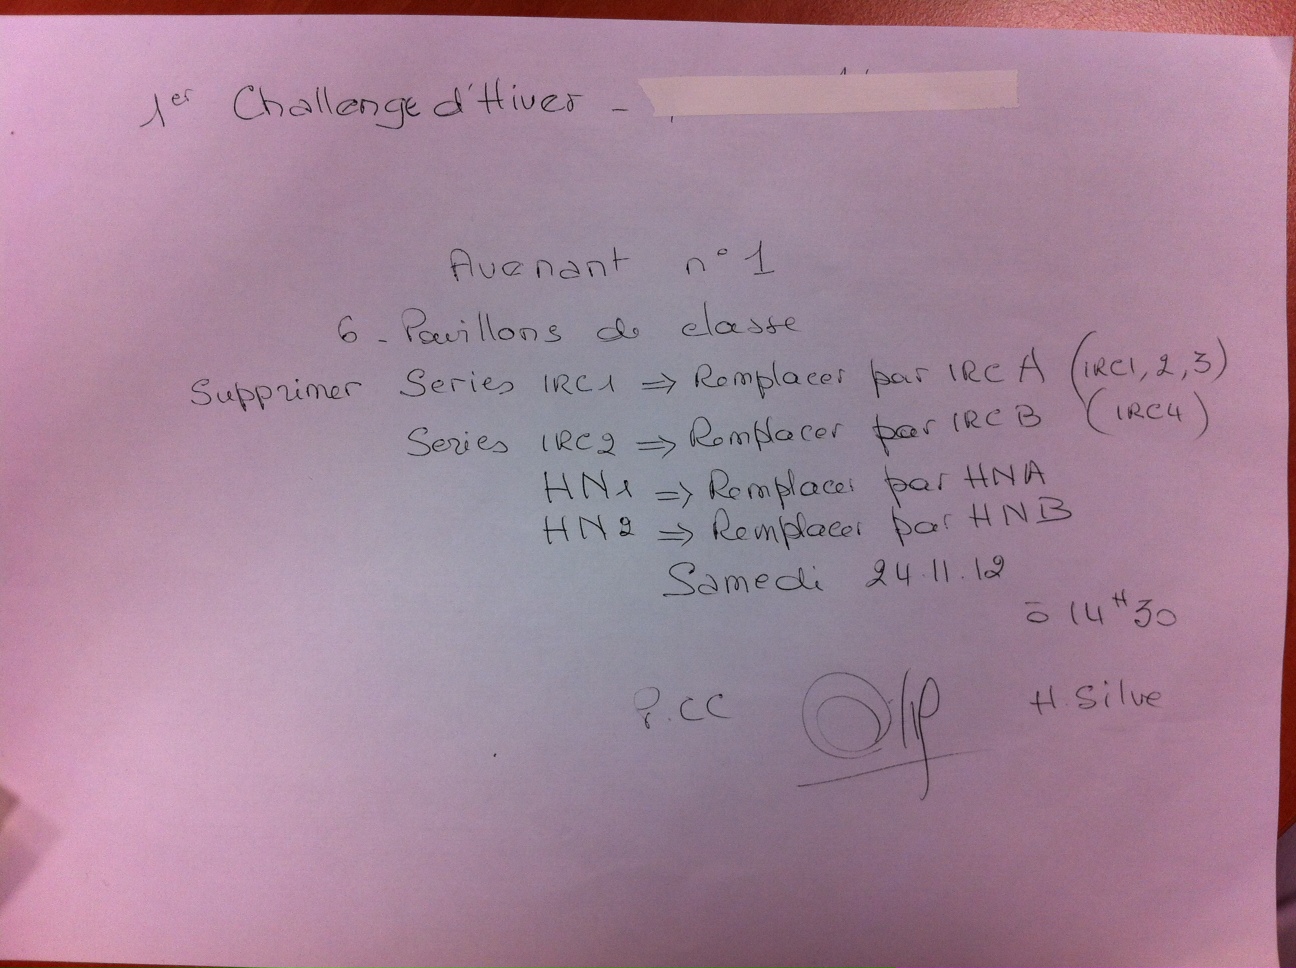 1er Challenge d'Hiver -
Avenant n°1
6 - Pavillons de classe
Supprimer Series IRC1 ⇒ Remplacer par IRC A (IRC1, 2, 3)
Series IRC2 ⇒ Remplacer par IRC B (IRC4)
HN1 ⇒ Remplacer par HNA
HN2 ⇒ Remplacer par HNB
Samedi 24.11.12
à 14H30
P.CC H. Silve